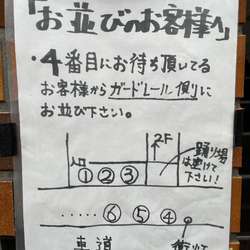 「お並びのお客様へ」
・4番目にお待ち頂いてる
お客様からガードレール側に
お並び下さい。
2F
踊り場
は空けて
下さい!
入口
① ② ③
・・・・・ ⑥ ⑤ ④
車道
街灯